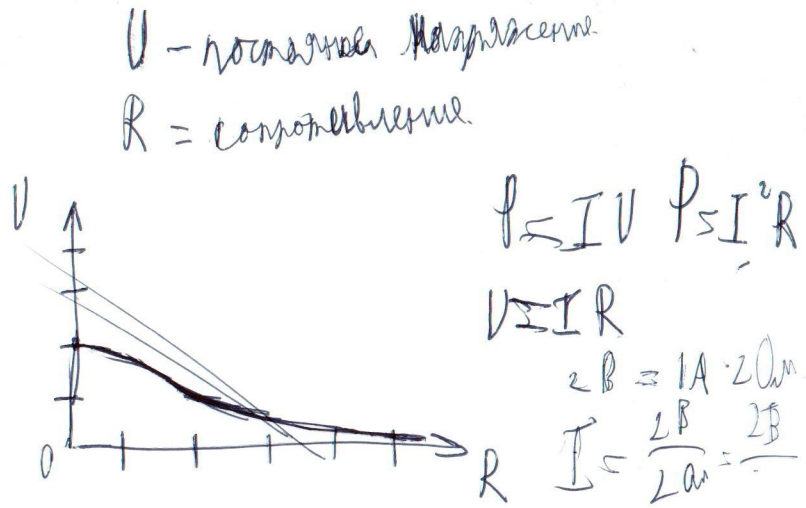 U – постоянное напряжение.
R = сопротивление.
U
P = I U P = I²R
U = I R
2В = 1А · 2Ом
I = 2В/2Ом = 2В/
0
R